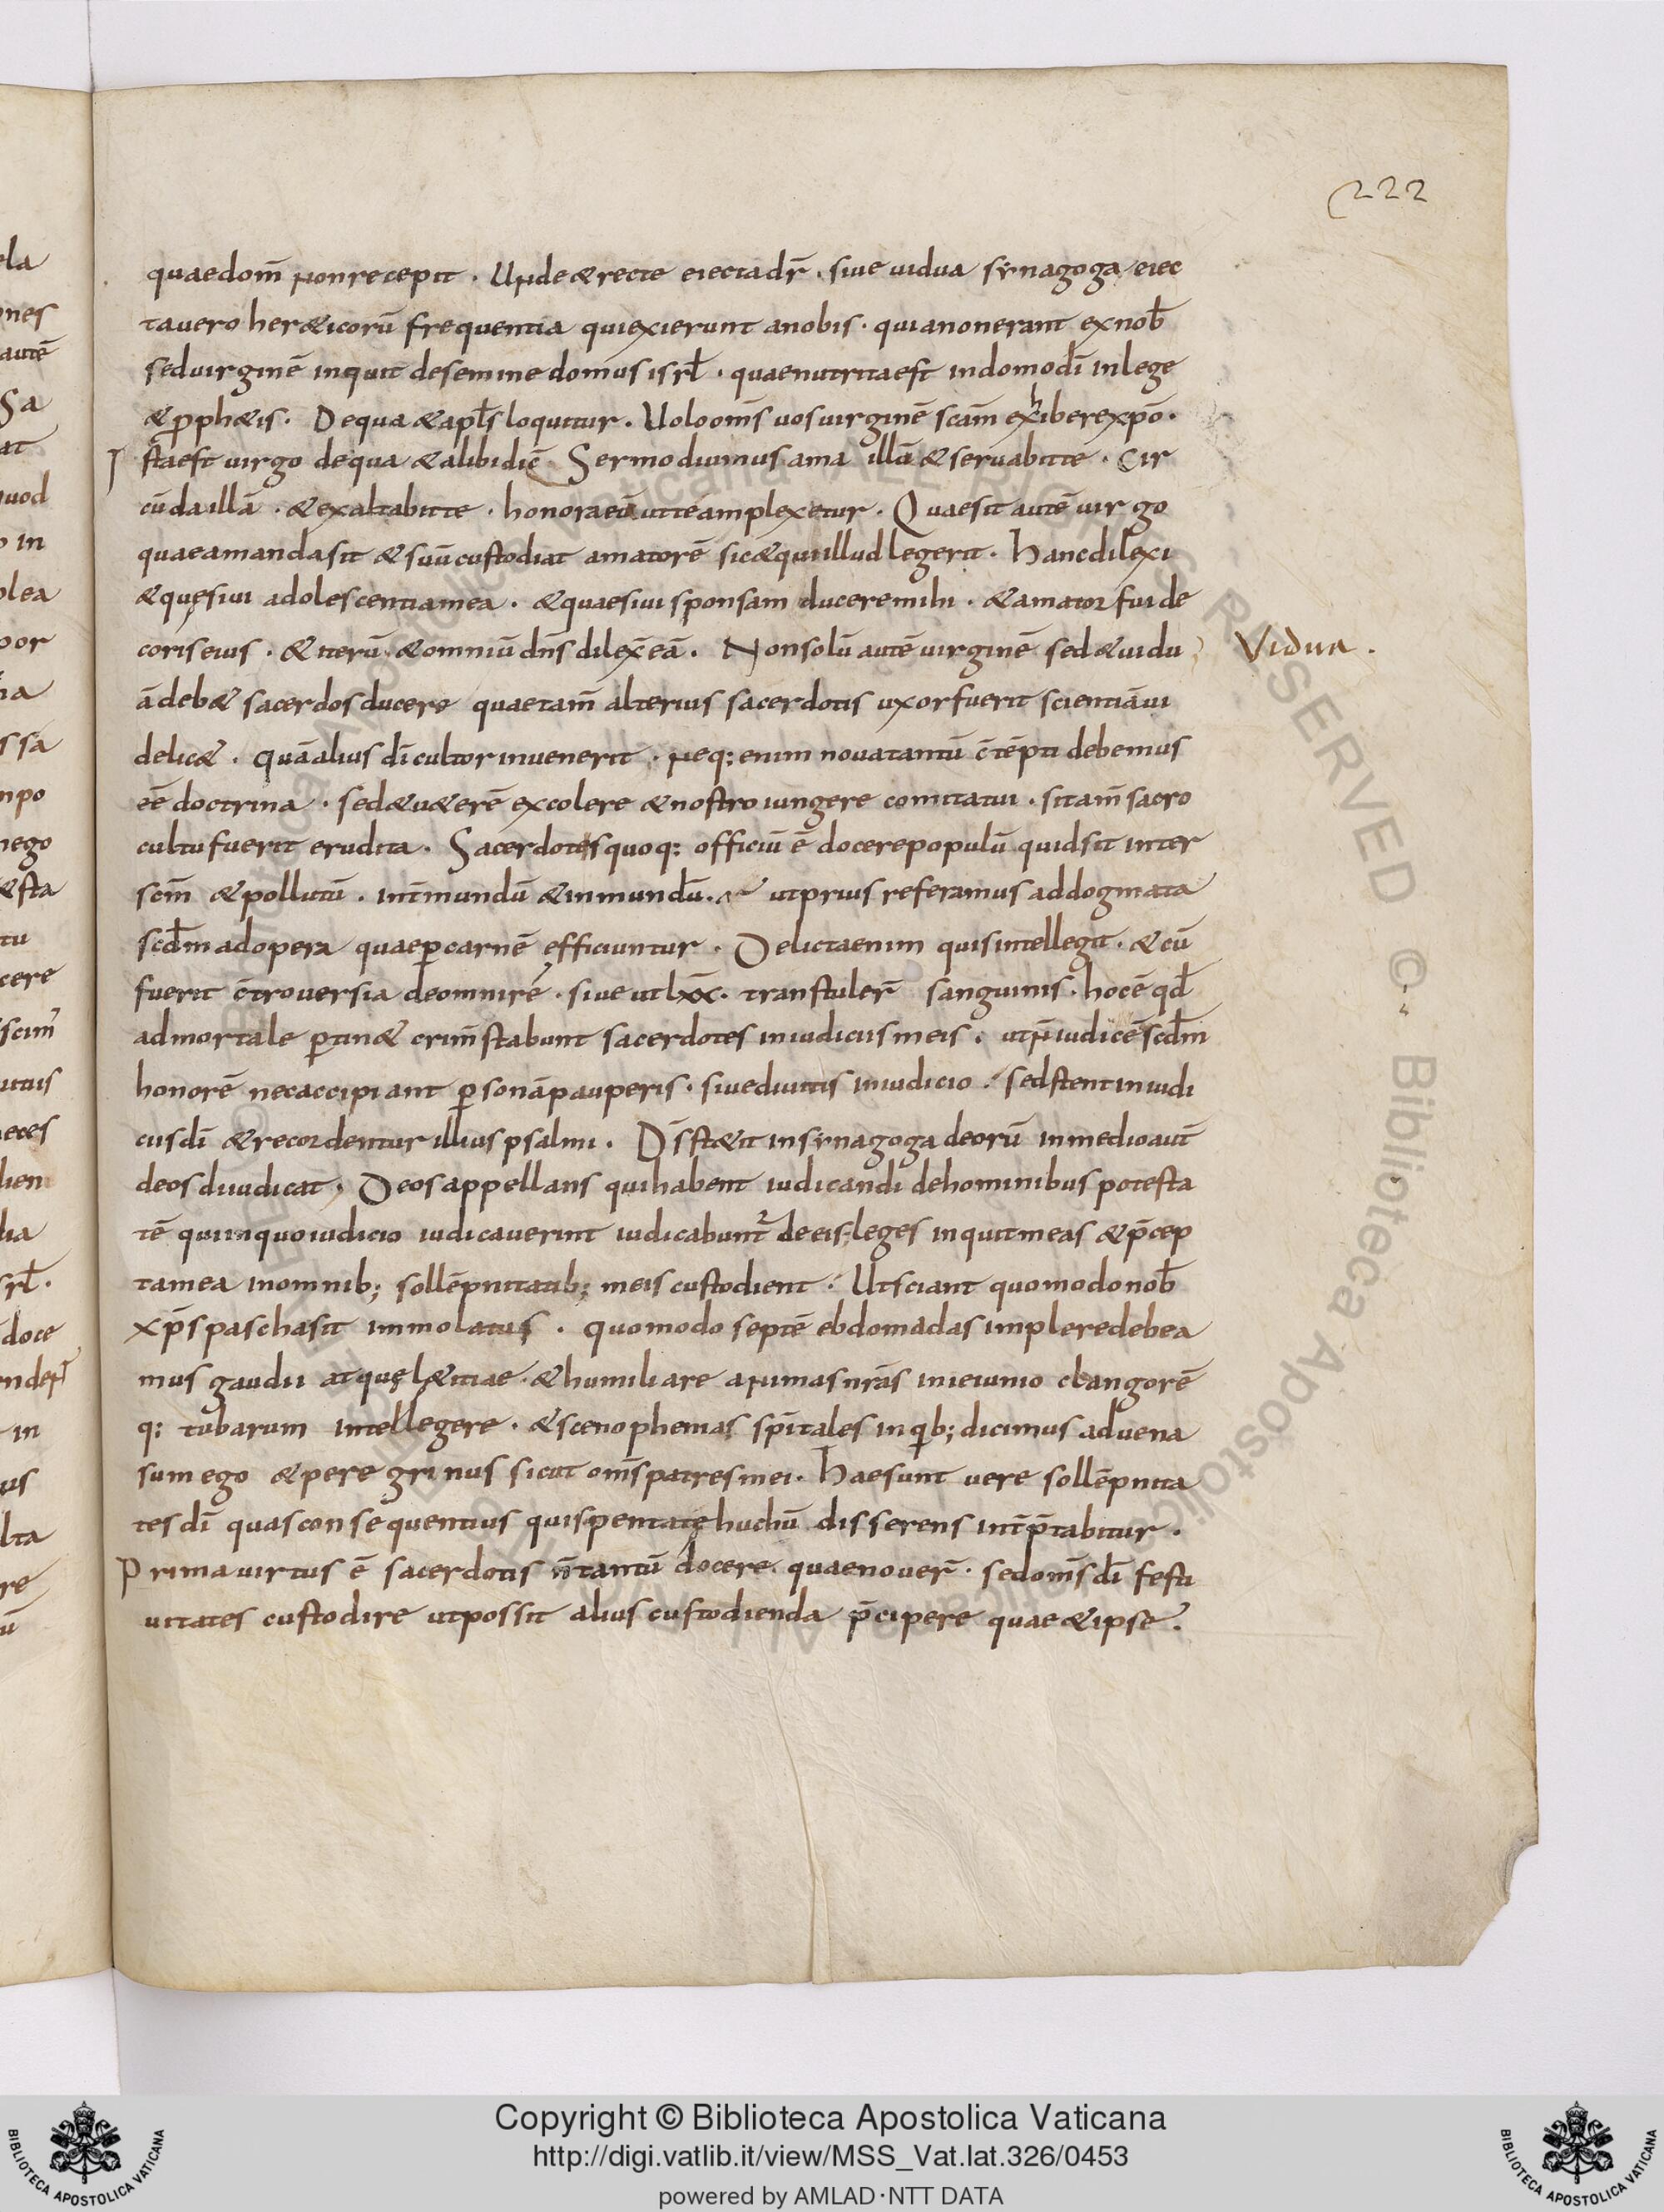 222
quaedom̄ nonrecepit . Unde&recte eiectadr̄ . siue uidua synagoga eiec
tauero her&icorū frequentia quiexierunt anobis . quianonerant exnob̄
seduirginē inquit desemine domus isrl̄ . quaenutritaest indomodī inlege
&ꝓph&is . Dequa &apl̄s loquitur . Uoloom̄s uosuirginē scām exhiberexpō .
Istaest uirgo dequa &alibidiē Sermodiuinus ama illā &seruabitte . Cir
cūdaillā . &exaltabitte . honoraeū utteamplexetur . Quaesit autē uirgo
quaeamandasit &suūcustodiat amatorē sic&quiilludlegerit . hancdilexi
&quęsiui adolescentiamea . &quaesiuisponsam duceremihi . &amator fuide
coriseius . &iterū &omniūdn̄s dilex̄eā . Nonsolū autē uirginē sed&uidu
Vidua .
ādeb& sacerdosducere quaetam̄ alterius sacerdotis uxorfuerit scientiāui
delic& . quāalius dīcultorinuenerit . neq: enim nouatantū c̄tēpti debemus
eē doctrina . sed&u&erē excolere &nostro iungere comitatui . sitam̄ sacro
cultufuerit erudita . Sacerdotesquoq: officiū ē docerepopulū quidsit inter
scm̄ &pollutū . int̄mundū &inmundū . utprius referamus addogmata
scd̄madopera quaeꝑcarnē efficiuntur . Delictaenim quisintellegit . &cū
fuerit c̄trouersia deomnirē . siue utlxx̄ . transtuler̄ sanguinis . hocē qd̄
admortale ꝑtin& crim̄ stabunt sacerdotes iniudiciismeis . utn̄iudicēscd̄m
honorē necaccipiant ꝑsonāpauperis . siuediuitis iniudicio . sedstentiniudi
ciisdī &recordentur illiuspsalmi . Ds̄st&it insynagoga deorū inmedioaut̄
deosdiiudicat . Deosappellans quihabent iudicandi dehominibus potesta
tē quiinquoiudicio iudicauerint iudicabunt̄ deeis leges inquitmeas &p̄cep
tamea inomnib; sollēpnitatib; meis custodient . Utsciant quomodonob̄
xp̄s paschasit immolatus . quomodo septē ebdomadas impleredebea
mus gaudii atquęl&itiae . &humiliare animasnrās inieiunio clangorē
q: tubarum intellegere . &scenophemas spīrtales inqb; dicimus aduena
sum ego &peregrinus sicut om̄spatresmei . haesunt uere sollēpnita
tesdī quasconsequentius quispentateęhuchū disserens int̄p̄tabitur .
Prima uirtus ē sacerdotis n̄tantū docere quaenouer̄ . sedom̄sdī festi
uitates custodire utpossit alius custodienda p̄cipere quae&ipse .
Copyright © Biblioteca Apostolica Vaticana
http://digi.vatlib.it/view/MSS_Vat.lat.326/0453
powered by AMLAD·NTT DATA
BIBLIOTECA APOSTOLICA VATICANA
BIBLIOTECA APOSTOLICA VATICANA